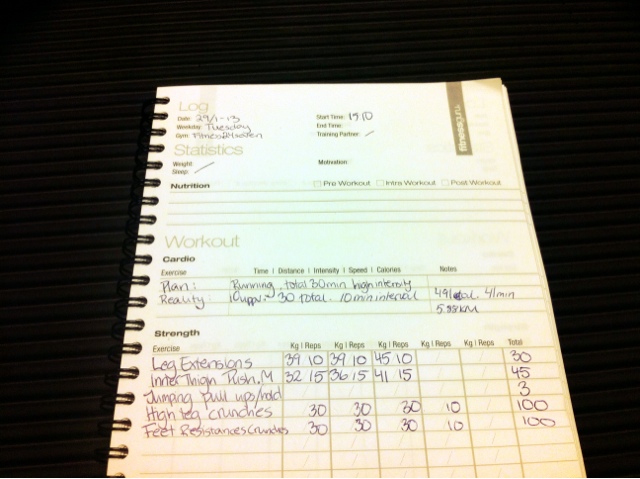 Log
Date: 29/1-13 Start Time: 15:10
Weekday: Tuesday End Time:
Gym: Fitness24seven Training Partner:
fitnessguru
Statistics
Weight: Motivation:
Sleep:
Nutrition Pre Workout Intra Workout Post Workout
Workout
Cardio
Exercise Time | Distance | Intensity | Speed | Calories Notes
Plan: Running, total 30min high intensity
Reality: 30 total. 10min interval 4/min
Strength
Exercise Kg | Reps Kg | Reps Kg | Reps Kg | Reps Kg | Reps Total
Leg Extensions 39 10 39 10 45 10 30
Inner Thigh Push.M 32 15 36 15 41 15 45
Jumping pull ups/hold 3
High leg crunches 30 30 30 10 100
Feet Resistance Crunches 30 30 30 10 100